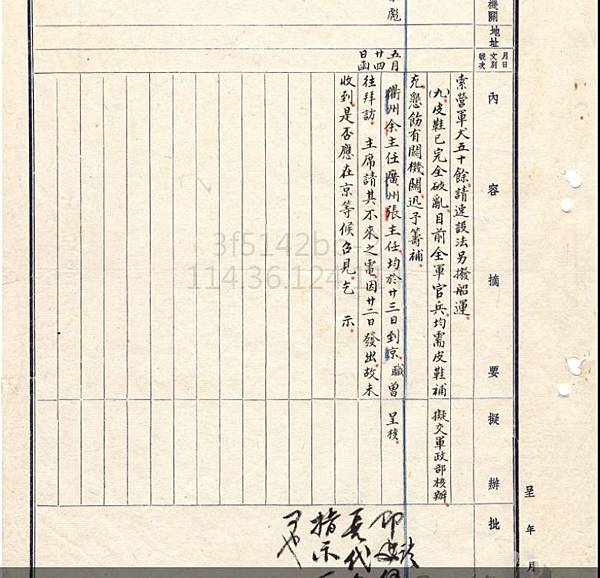 機關
地址
月日
文別
號次
內容摘要
擬辦
批
呈 年 月
彪
索營軍犬五十餘請速設法另撥船運
(九)皮鞋已完全破亂目前全軍官兵均需皮鞋補
擬交軍政部核辦
充懇飭有關機關迅予籌補
五月
廿四
日函
衢州余主任廣州張主任均於廿三日到京職曾
呈核
往拜訪 主席請其不來之電因廿二日發出故未
收到是否應在京等候召見乞 示
長代
指示
可也
3f5142b
114.36.124.1